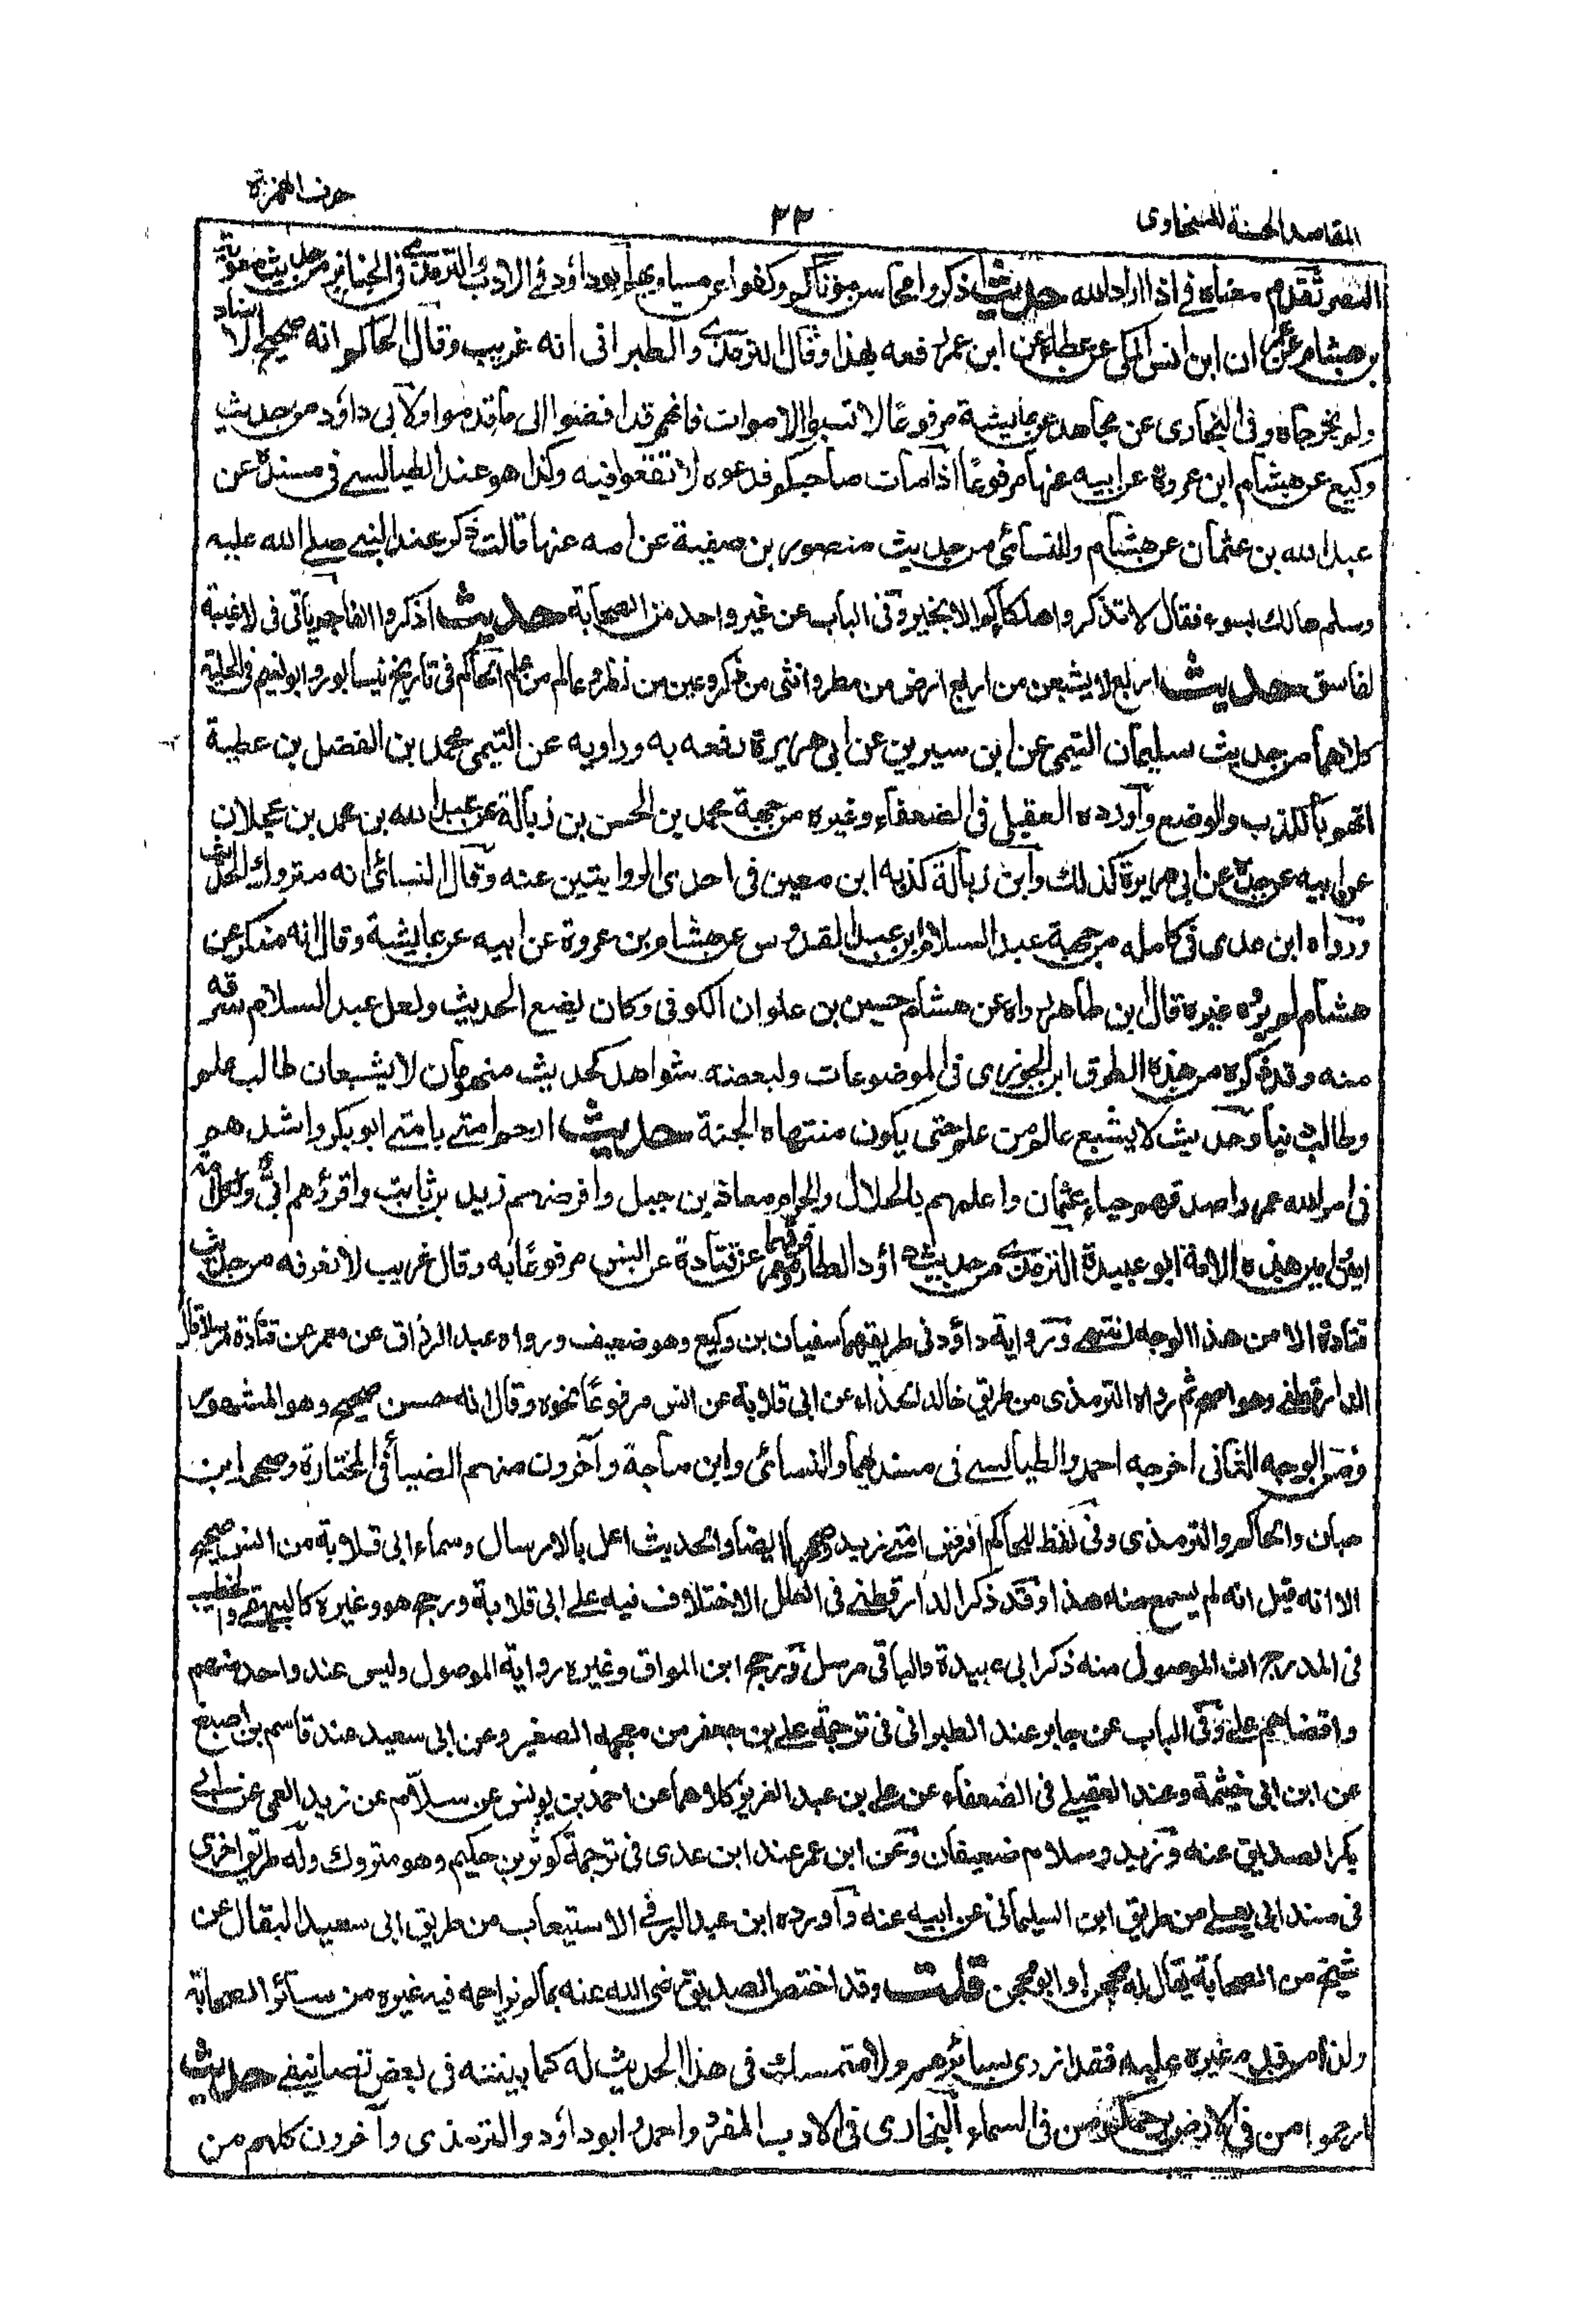 المقاصد الحسنة للسخاوى
٣٣
حرف الهمزة
النصر تقدم معناه في اذا اراد الله حديث اذكروا محاسن موتاكم وكفوا عن مساويهم ابوداؤد في الادب والترمذى في الجنائز من حديث معوية
بن هشام عن عمران ابن انس المكى عن عطاء عن ابن عمر رفعه بهذا وقال الترمذى والطبرانى انه غريب وقال الحاكم انه صحيح الاسناد
ولم يخرجاه وفى البخارى عن مجاهد عن عايشة مرفوعًا لا تسبوا الاموات فانهم قد افضوا الى ما قدموا ولابى داؤد من حديث
وكيع عن هشام ابن عروة عن ابيه عنها مرفوعًا اذا مات صاحبكم فدعوه لا تقعوا فيه وكذا هو عند الطيالسى فى مسنده عن
عبد الله بن عثمان عن هشام وللنسائى من حديث منصور بن صفية عن امه عنها قالت ذكر عند النبى صلى الله عليه
وسلم هالك بسوء فقال لا تذكروا هلكاكم الا بخير وفى الباب عن غير واحد من الصحابة حديث اذكروا الفاجر يأتى فى لا غيبة
لفاسق حديث اربع لا يشبعن من اربع ارض من مطر وانثى من ذكر وعين من نظر وعالم من علم الحاكم فى تاريخ نيسابور وابو نعيم فى الحلية
كلاهما من حديث سليمان التيمى عن ابن سيرين عن ابى هريرة رفعه به وراويه عن التيمى محمد بن الفضل بن عطية
اتهم بالكذب والوضع وأورده العقيلى فى الضعفاء وغيره من جهة محمد بن الحسن بن زبالة عن عبد الله بن محمد بن عجلان
عن ابيه عن جده عن ابى هريرة كذلك وابن زبالة كذبه ابن معين فى احدى الروايتين عنه وقال النسائى انه متروك الحديث
ورواه ابن عدى فى كامله من جهة عبد السلام ابن عبد القدوس عن هشام بن عروة عن ابيه عن عايشة وقال انه منكر عن
هشام لم يروه غيره قال ابن طاهر رواه عن هشام حسين بن علوان الكوفى وكان يضع الحديث ولعل عبد السلام سرقه
منه وقد ذكره من هذه الطرق ابن الجوزى فى الموضوعات ولبعضه شواهد كحديث منهومان لا يشبعان طالب علم
وطالب دنيا وحديث لا يشبع عالم من علم حتى يكون منتهاه الجنة حديث ارحم امتى بامتى ابو بكر واشدهم
فى امر الله عمر واصدقهم حياء عثمان واعلمهم بالحلال والحرام معاذ بن جبل وافرضهم زيد بن ثابت واقرؤهم ابىّ ولكل امة
امين وامين هذه الامة ابو عبيدة الترمذى من حديث داؤد العطار عن معمر عن قتادة عن انس مرفوعًا به وقال غريب لا نعرفه من حديث
قتادة الا من هذا الوجه انتهى ورواية داؤد فى طريقها سفيان بن وكيع وهو ضعيف ورواه عبد الرزاق عن معمر عن قتادة مرسلا قال
الدارقطنى وهو اصح ثم رواه الترمذى من طريق خالد الحذاء عن ابى قلابة عن انس مرفوعًا نحوه وقال انه حسن صحيح وهو المشهور
ومن الوجه الثانى اخرجه احمد والطيالسى فى مسنديهما والنسائى وابن ماجة وآخرون منهم الضياء فى المختارة وصححه ابن
حبان والحاكم والترمذى وفى لفظ للحاكم افرض امتى زيد وصححها ايضا والحديث اعل بالارسال وسماع ابى قلابة من انس صحيح
الا انه قيل انه لم يسمع منه هذا وقد ذكر الدارقطنى فى العلل الاختلاف فيه على ابى قلابة ورجح هو وغيره كالبيهقى والخطيب
فى المدرج ان الموصول منه ذكر ابى عبيدة والباقى مرسل ورجح ابن المواق وغيره رواية الموصول وليس عند واحد منهم
واقضاهم على وفى الباب عن جابر عند الطبرانى فى ترجمة على بن جعفر من معجمه الصغير وعن ابى سعيد عند قاسم بن اصبغ
عن ابن ابى خيثمة وعند العقيلى فى الضعفاء عن على بن عبد العزيز كلاهما عن احمد بن يونس عن سلام عن زيد العمى عن ابى
بكر الصديق عنه وزيد وسلام ضعيفان وعن ابن عمر عند ابن عدى فى ترجمة كوثر بن حكيم وهو متروك وله طريق اخرى
فى مسند ابى يعلى من طريق ابن السيلمانى عن ابيه عنه وأورده ابن عبد البر فى الاستيعاب من طريق ابى سعيد البقال عن
شيخ من الصحابة يقال له محجن او ابو محجن قلت وقد اختص الصديق رضى الله عنه بما لم يزاحمه فيه غيره من سائر الصحابة
ولذا من قبل غيره عليه فقد ازرى بسائرهم ولا متمسك فى هذا الحديث له كما بينته فى بعض تصانيفى حديث
ارحموا من فى الارض يرحمكم من فى السماء البخارى فى الادب المفرد واحمد وابو داؤد والترمذى وآخرون كلهم من